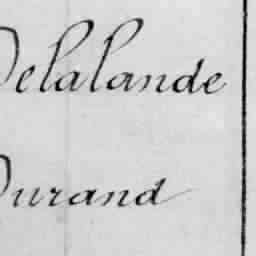 Delalande
Durand